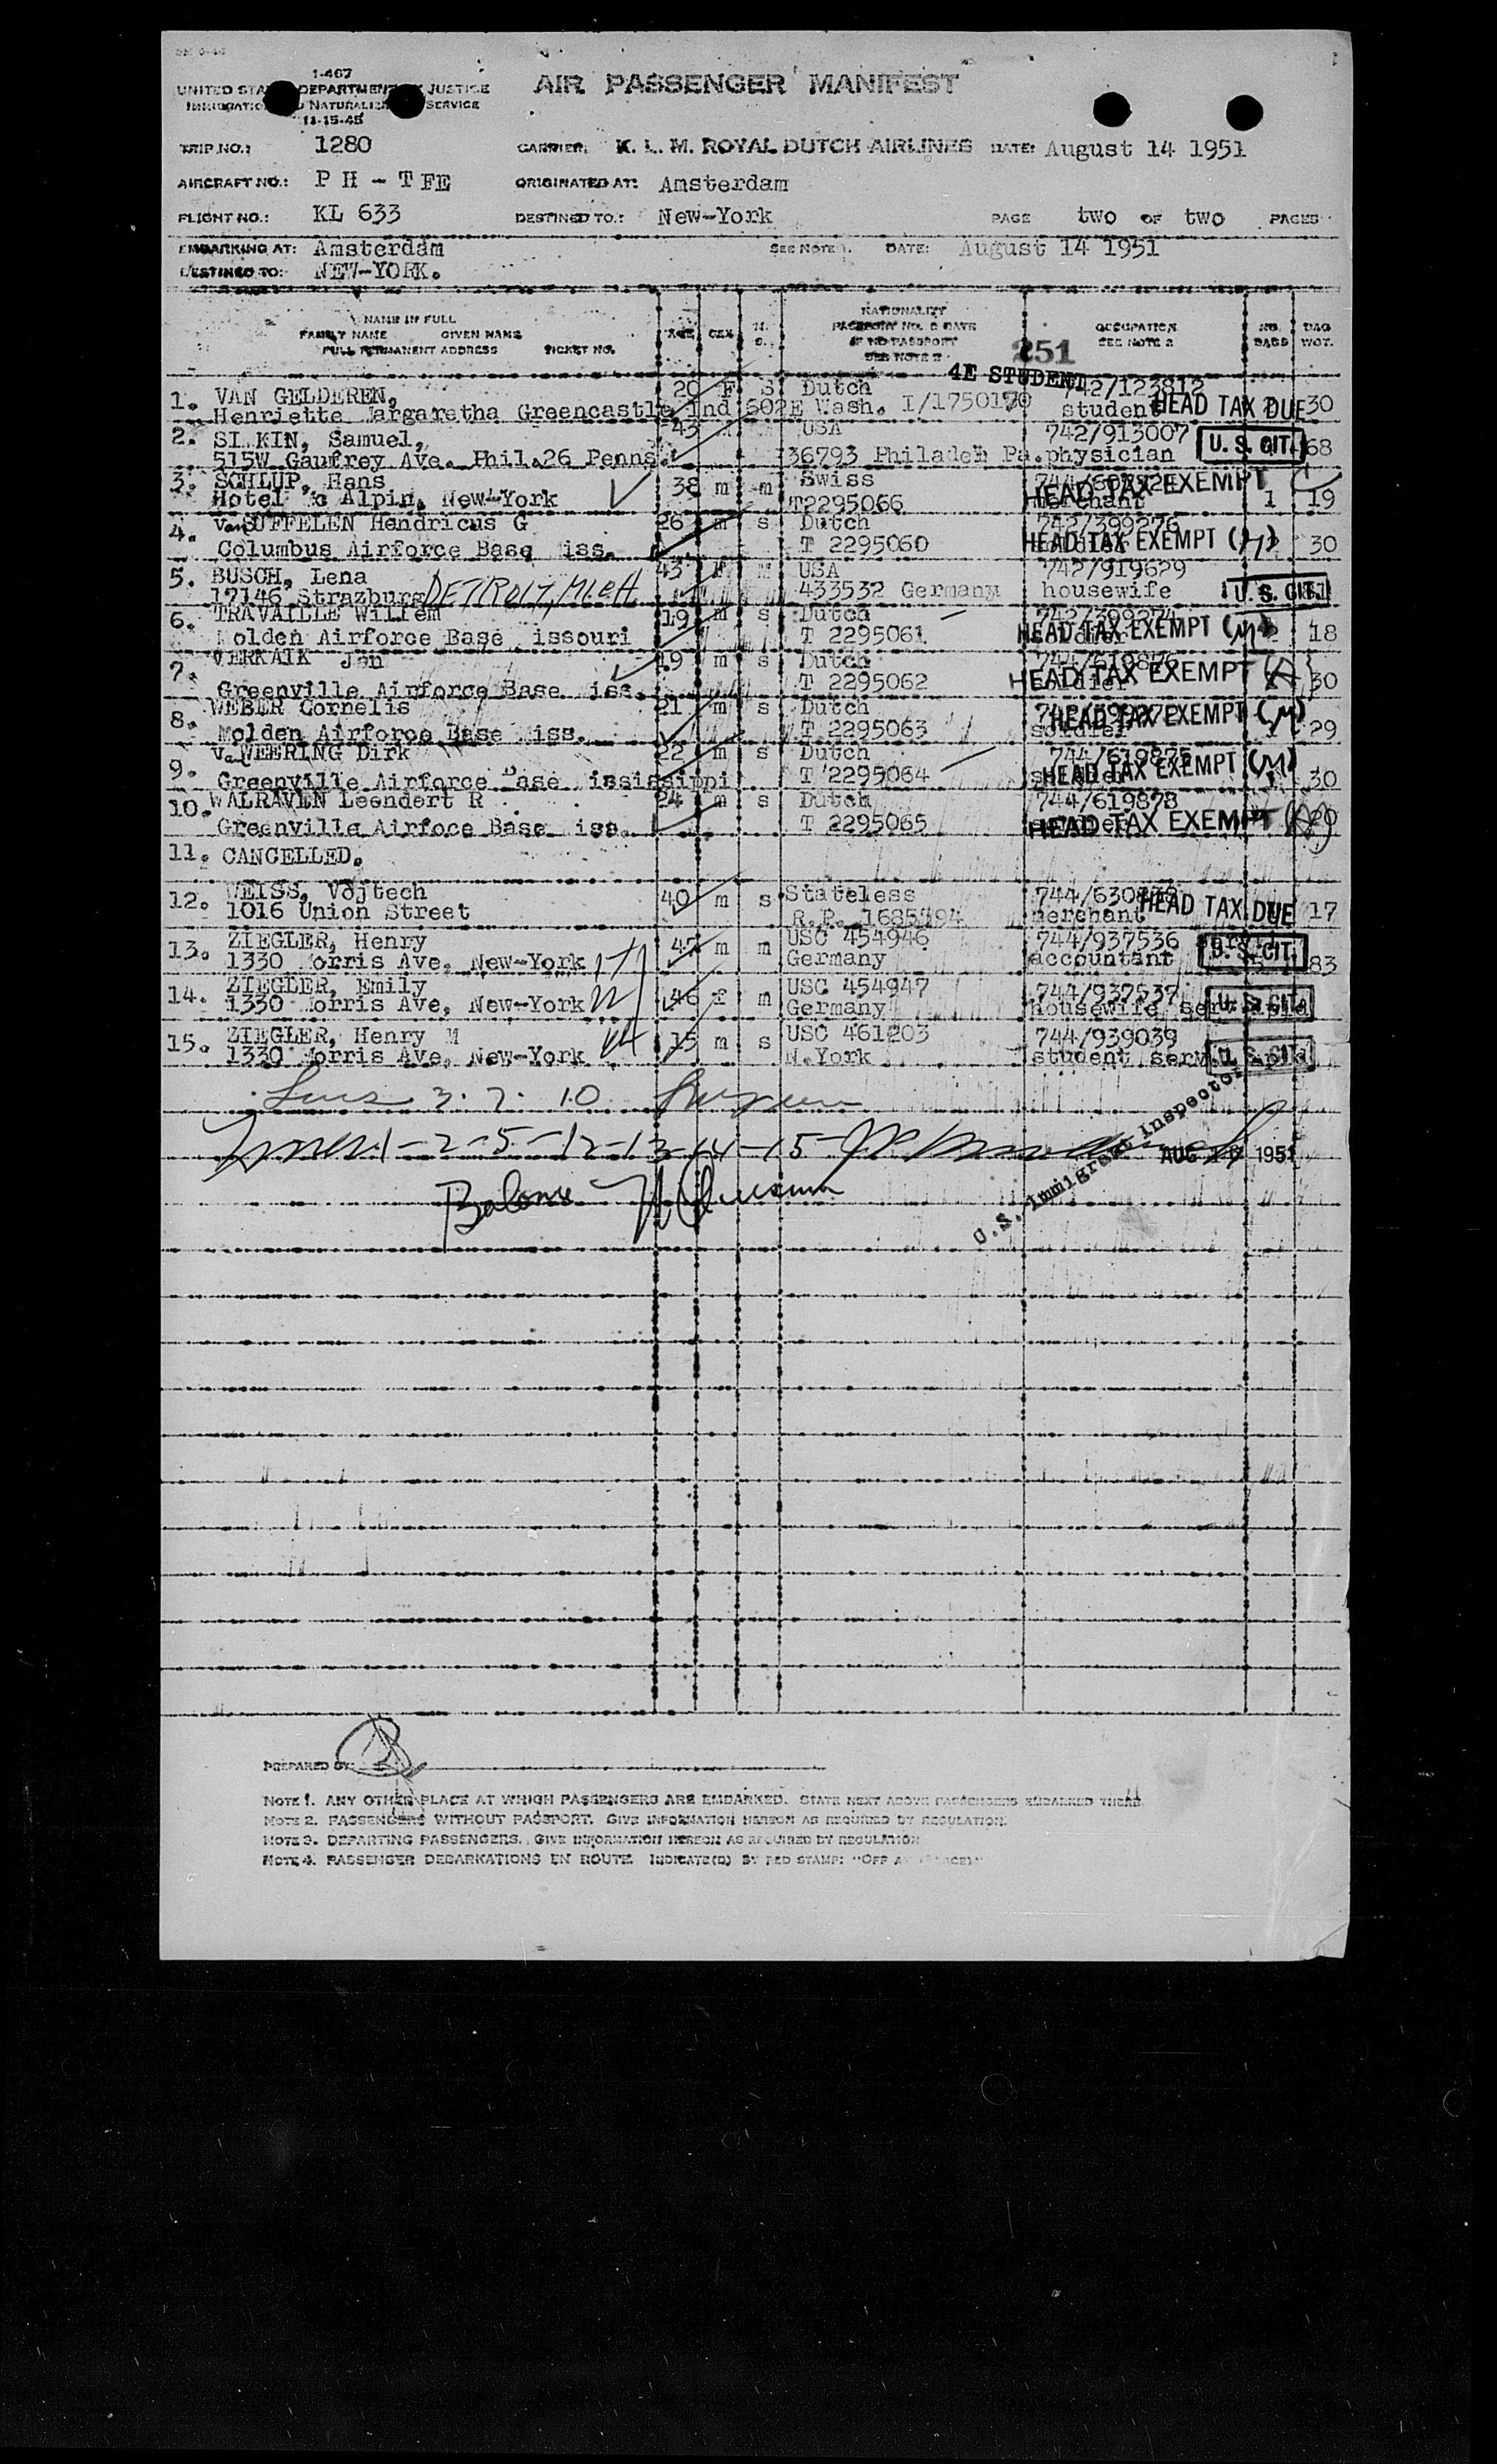 1-467
UNITED STA DEPARTMENT JUSTICE
IMMIGRATIO D NATURALIZ SERVICE
11-15-45
AIR PASSENGER MANIFEST
TRIP NO.: 1280 CARRIER: K. L. M. ROYAL DUTCH AIRLINES DATE: August 14 1951
AIRCRAFT NO.: P H - T FE ORIGINATED AT: Amsterdam
FLIGHT NO.: KL 633 DESTINED TO.: New-York PAGE two OF two PAGES
EMBARKING AT: Amsterdam SEE NOTE 1. DATE: August 14 1951
DESTINED TO: NEW-YORK.
NAME IN FULL NATIONALITY
FAMILY NAME GIVEN NAME AGE SEX M. PASSPORT NO. & DATE OCCUPATION NO. BAG
FULL PERMANENT ADDRESS TICKET NO. S. IF NO PASSPORT SEE NOTE 2 BAGS WGT.
SEE NOTE 2 251
4E STUDENT
1. VAN GELDEREN, 20 F S Dutch 742/123812
Henriette Margaretha Greencastle Ind 602E Wash. I/1750170 student HEAD TAX DUE 30
2. SI KIN, Samuel, 43 USA 742/913007
515W Gaufrey Ave. Phil.26 Penns. 36793 Philadeh Pa. physician U. S. CIT. 68
3. SCHLUP, Hans 38 m m Swiss
Hotel Mc Alpin, New-York T2295066 merchant HEAD TAX EXEMPT 1 19
4. van SUFFELEN Hendricus G 26 m s Dutch 742/399276
Columbus Airforce Base iss. T 2295060 HEAD TAX EXEMPT (M) 30
5. BUSCH, Lena 43 F M USA 742/919629
17146 Strazburg DETROIT, MICH 433532 Germany housewife U. S. CIT.
6. TRAVAILLE Willem 19 m s Dutch 742/399274
Molden Airforce Base issouri T 2295061 HEAD TAX EXEMPT (M) 18
7. VERKAIK Jan 19 m s Dutch 744/619876
Greenville Airforce Base iss. T 2295062 soldier HEAD TAX EXEMPT 30
8. WEBER Cornelis 21 m s Dutch
Molden Airforce Base iss. T 2295063 soldier HEAD TAX EXEMPT (M) 29
9. v. WEERING Dirk 22 m s Dutch 744/619875
Greenville Airforce Base ississippi T 2295064 HEAD TAX EXEMPT (M) 30
10. WALRAVEN Leendert R 24 m s Dutch 744/619878
Greenville Airfoce Base iss. T 2295065 HEAD TAX EXEMPT 20
11. CANCELLED.
12. WEISS, Vojtech 40 m s Stateless
1016 Union Street R.P. merchant HEAD TAX DUE 17
13. ZIEGLER, Henry 47 m m USC 454946 744/937536
1330 Morris Ave, New-York Germany accountant U. S. CIT. 83
14. ZIEGLER, Emily 46 f m USC 454947 744/937537
1330 Morris Ave, New-York Germany housewife U. S. CIT.
15. ZIEGLER, Henry M 15 m s USC 461203 744/939039
1330 Morris Ave, New-York N.York student serv. U. S. CIT.
3. 7. 10
1-2-5-12-13-14-15 AUG 1951
U.S. Immigrant Inspector
PREPARED BY:
NOTE 1. ANY OTHER PLACE AT WHICH PASSENGERS ARE EMBARKED. STATE NEXT ABOVE PASSENGERS EMBARKED THERE
NOTE 2. PASSENGERS WITHOUT PASSPORT. GIVE INFORMATION HEREON AS REQUIRED BY REGULATION.
NOTE 3. DEPARTING PASSENGERS. GIVE INFORMATION HEREON AS REQUIRED BY REGULATION
NOTE 4. PASSENGER DEBARKATIONS EN ROUTE. INDICATE(D) BY RED STAMP: "OFF A